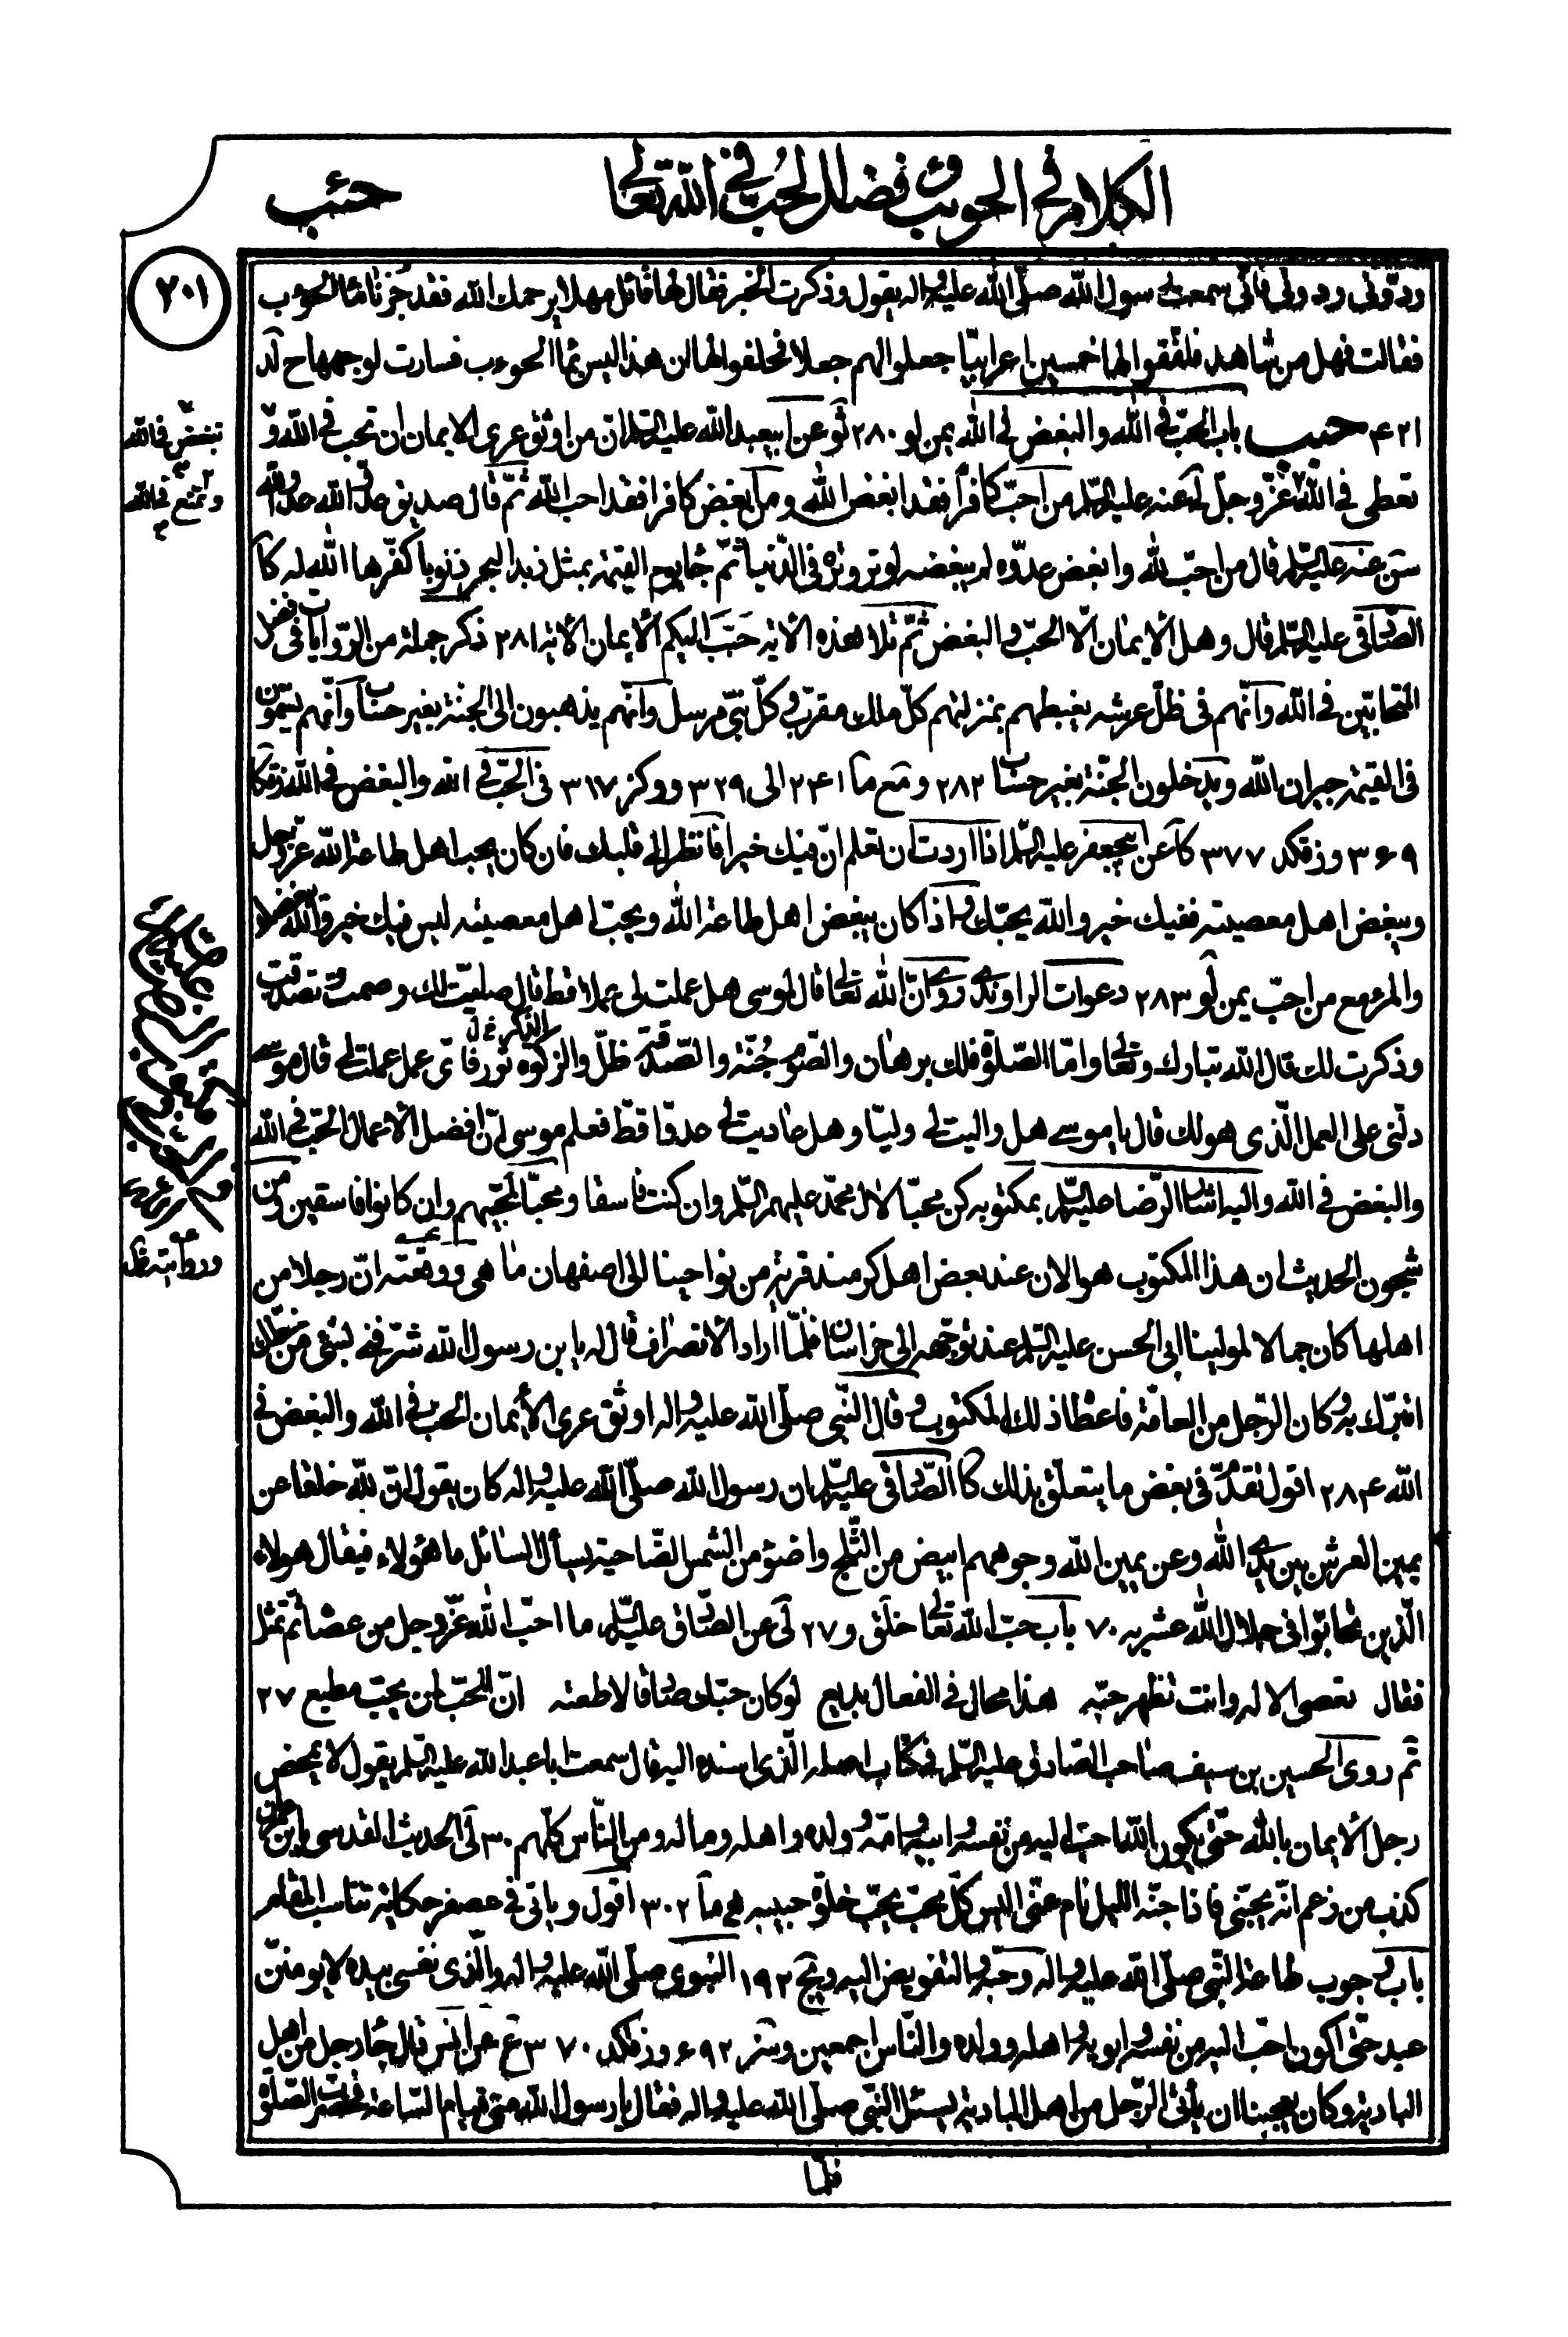 الكلام في الحوءب وفضل الحب في الله تعالى
حئب
٢٠١
ردّوني ردوني فاني سمعت رسول الله صلى الله عليه واله يقول وذكرت الخبر فقال لها قائل مهلا يرحمك الله فقد جزنا ماء الحوءب
فقالت فهل من شاهد فلفقوا لها خمسين اعرابيّا جعلوا لهم جعلا فحلفوا لها ان هذا ليس بماء الحوءب فسارت لوجهها ح لد
٤٢١ حبب باب الحبّ في الله والبغض في الله يمن لو ٢٨٠ ثو عن ابيعبد الله عليه السّلم انّ من اوثق عرى الايمان ان تحب في الله و
تبغض في الله
و تمنع في الله
تعطى في الله عزّ وجلّ لى عنه عليه السّلم من احبّ كافرا فقد ابغض الله ومن ابغض كافرا فقد احب الله ثمّ قال صديق عدوّ الله عدوّ الله
سن عنه عليه السّلم قال من احبّ لله وابغض عدوّه لم يبغضه لوتر وتره في الدّنيا ثمّ جاء يوم القيمة بمثل زبد البحر ذنوبا كفّرها الله له كا
الصّادق عليه السّلم قال وهل الايمان الّا الحبّ والبغض ثمّ تلا هذه الاية حَبَّبَ اليكم الايمان الاية ٢٨١ ذكر جملة من الرّوايات في فضل
المتحابّين في الله وانّهم في ظلّ عرشه يغبطهم بمنزلتهم كلّ ملك مقرّب وكلّ نبيّ مرسل وانّهم يذهبون الى الجنة بغير حساب وانّهم يسمّون
في القيمة جيران الله ويدخلون الجنّة بغير حساب ٢٨٢ و مع ما ٢٤١ الى ٣٢٩ و وكز ٣١٧ في الحبّ في الله والبغض في الله
٣٦٩ و زقكد ٣٧٧ كا عن ابيجعفر عليه السّلم اذا اردت ان تعلم انّ فيك خيرا فانظر الى قلبك فان كان يحب اهل طاعة الله عزّ وجل
ويبغض اهل معصيته ففيك خير والله يحبّك واذا كان يبغض اهل طاعة الله ويحبّ اهل معصيته ليس فيك خير والله يبغضك
والمرء مع من احبّ يمن لو ٢٨٣ دعوات الراوندي روى انّ الله تعالى قال لموسى هل عملت لي عملا قط قال صليت لك وصمت وتصدقت
وذكرت لك قال الله تبارك وتعالى وامّا الصّلوة فلك برهان والصّوم جُنّة والصّدقة ظلّ والزكوة نور فايّ عمل عملت لي قال موسى
دلّني على العمل الّذي هو لك قال يا موسى هل واليت لي وليّا وهل عاديت لي عدوّا قطّ فعلم موسى انّ افضل الاعمال الحبّ في الله
والبغض في الله واليه اشار الرّضا عليه السّلم بمكتوبه كن محبّا لال محمّد عليهم السّلم وان كنت فاسقا ومحبّا لمحبّيهم وان كانوا فاسقين ومن
شجون الحديث ان هذا المكتوب هو الان عند بعض اهل كرمند قرية من نواحينا الى اصفهان ما هي ووقعته انّ رجلا من
اهلها كان جمالا لمولينا ابي الحسن عليه السّلم عند توجّهه الى خراسان فلمّا اراد الانصراف قال له يا بن رسول الله شرّفني بشيء من خطّك
اتبرّك به وكان الرّجل من العامّة فاعطاه ذلك المكتوب و قال النّبي صلّى الله عليه واله اوثق عرى الايمان الحبّ في الله والبغض في
الله ٢٨٤ اقول تقدّم في بغض ما يتعلّق بذلك كا الصّادق عليه السّلم ان رسول الله صلّى الله عليه واله كان يقول انّ لله خلقا عن
يمين العرش بين يدي الله وعن يمين الله وجوههم ابيض من الثّلج واضوء من الشمس الضّاحية يسأل السّائل ما هؤلاء فيقال هولاء
الّذين تحابّوا في جلال الله عشريه ٧٠ باب حبّ الله تعالى خلق و ٢٧ لى عن الصّادق عليه السّلم ما احبّ الله عزّ وجل من عصاه ثمّ تمثل
فقال تعصى الاله وانت تظهر حبّه هذا محال في الفعال بديع لو كان حبّك صادقا لاطعته انّ المحبّ لمن يحبّ مطيع ٢٧
ثم روى الحسين بن سيف صاحب الصّادق عليه السّلم في كتاب اصله الّذي اسنده اليه قال سمعت ابا عبد الله عليه السّلم يقول لا يمحض
رجل الايمان بالله حتّى يكون الله احبّ اليه من نفسه وابيه وامّه وولده واهله وماله ومن النّاس كلّهم ٣٠ لى الحديث القدسي يابن عمران
كذب من زعم انّه يحبّني فاذا جنّه الليل نام عنّي اليس كلّ محبّ يحبّ خلوة حبيبه مع ما ٣٠٢ اقول وياتي في عصفر حكاية تناسب المقام
باب وجوب طاعة النّبي صلّى الله عليه واله وحبّه والتفويض اليه و يج ١٩٢ النّبوي صلّى الله عليه واله والّذي نفسي بيده لا يؤمننّ
عبد حتّى اكون احبّ اليه من نفسه وابويه واهله وولده والنّاس اجمعين وسر ٦٩٢ و زقكد ٣٧٠ ع عن انس قال جاء رجل من اهل
البادية وكان يعجبنا ان يأتي الرّجل من اهل البادية يسئل النّبي صلّى الله عليه واله فقال يا رسول الله متى قيام السّاعة فحضرت الصّلوة
فلمّا